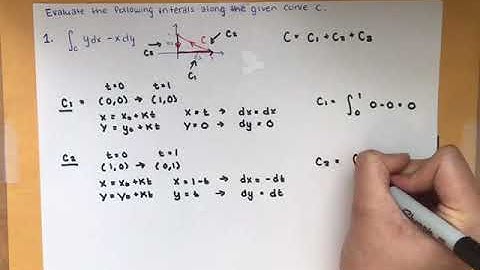 Evaluate the following interals along the given curve C.
1. ∫C ydx - xdy
C3 → C ← C2
C1
C = C1 + C2 + C3
t=0 t=1
C1 = (0,0) → (1,0)
x = x0 + Kt x = t → dx = dx
y = y0 + Kt y = 0 → dy = 0
C1 = ∫0 1 0 - 0 = 0
t=0 t=1
C2 (1,0) → (0,1)
x = x0 + Kt x = 1-t → dx = -dt
y = y0 + Kt y = t → dy = dt
C2 =